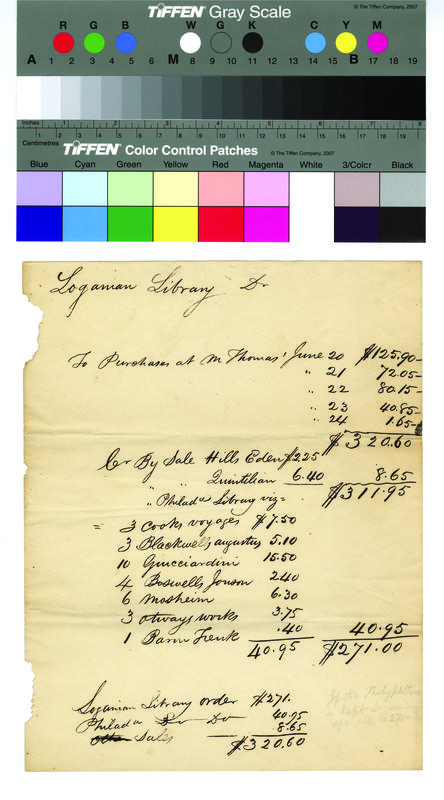 TIFFEN® Gray Scale © The Tiffen Company, 2007
R G B W G K C Y M
A 1 2 3 4 5 6 7 M 8 9 10 11 12 13 14 15 B 17 18 19
Inches 1 2 3 4 5 6 7 8
Centimetres 1 2 3 4 5 6 7 8 9 10 11 12 13 14 15 16 17 18 19
TIFFEN® Color Control Patches © The Tiffen Company, 2007
Blue Cyan Green Yellow Red Magenta White 3/Color Black
Loganian Library Dr
To Purchases at M Thomas' June 20 $125.90-
" 21 72.05-
" 22 80.15-
" 23 40.85-
" 24 1.65-
$320.60
Cr By Sale Hills Eden $225
" " Quintilian 6.40 8.65
$311.95
" Philada Library viz=
= 3 Cooks voyages $7.50
3 Blackwells augustus 5.10
10 Guicciardini 15.50
4 Boswells Jonson 240
6 Mosheim 6.30
3 Otways works 3.75
1 Baron Trenk .40 40.95
40.95 $271.00
Loganian Library order $271.
Philada Do Do 40.95
Sales 8.65
$320.60